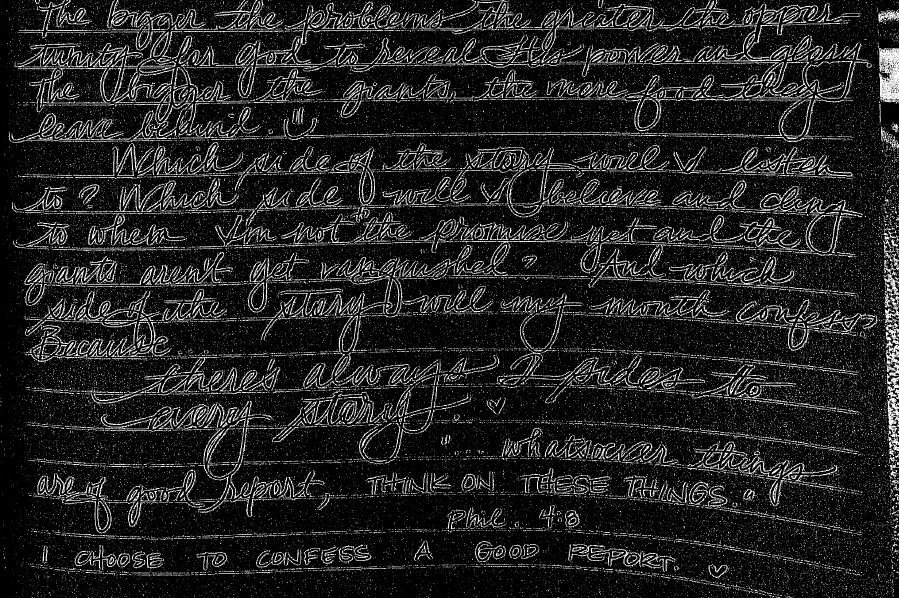 The bigger the problems the greater the oppor-
tunity for god to reveal His power and glory
The bigger the giants, the more food they
leave behind. "U
Which side of the story will I listen
to? Which side will I believe and cling
to when I'm not to the promise yet and the
giants aren't yet vanquished? And which
side of the story will my mouth confess?
Because...
there's always 2 sides to
every story. ♡
"... whatsoever things
are of good report, THINK ON THESE THINGS."
Phil. 4:8
I CHOOSE TO CONFESS A GOOD REPORT. ♡